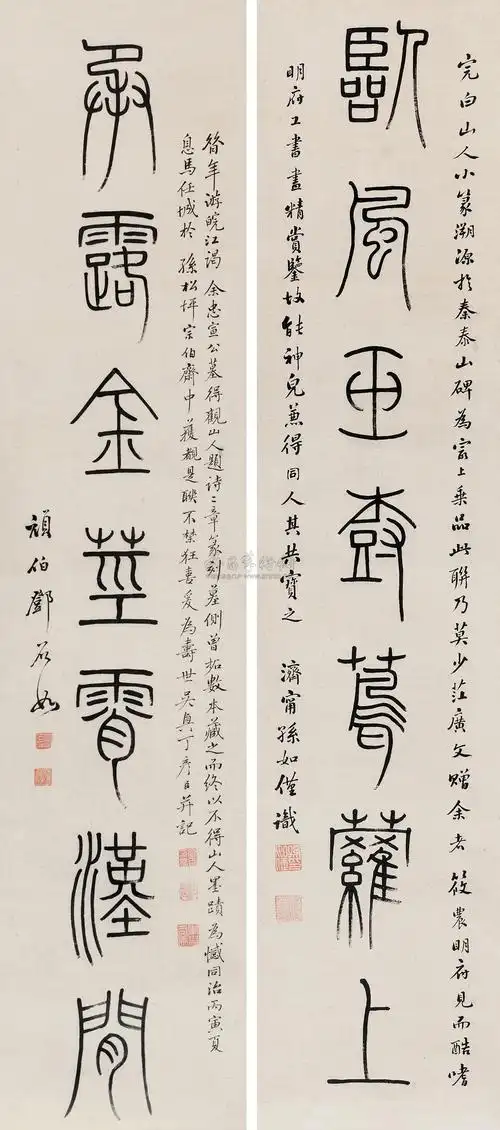 完白山人小篆溯源於秦泰山碑為最上乘品此聯乃莫少莅廣文贈余者 筱農明府見而酷嗜
臨風玉樹蔦蘿上
明府工書畫精賞鑒故能神皃兼得同人其共寶之 濟甯孫如僅識
昔年游皖江謁 余忠宣公墓得觀山人題詩二章篆刻墓側曾拓數本藏之而終以不得山人墨蹟為憾同治丙寅夏
息馬任城於 孫松坪宗伯齋中獲覩是聯不禁狂喜爰為壽世吳興丁彥臣并記
承露金莖霄漢間
頑伯鄧石如